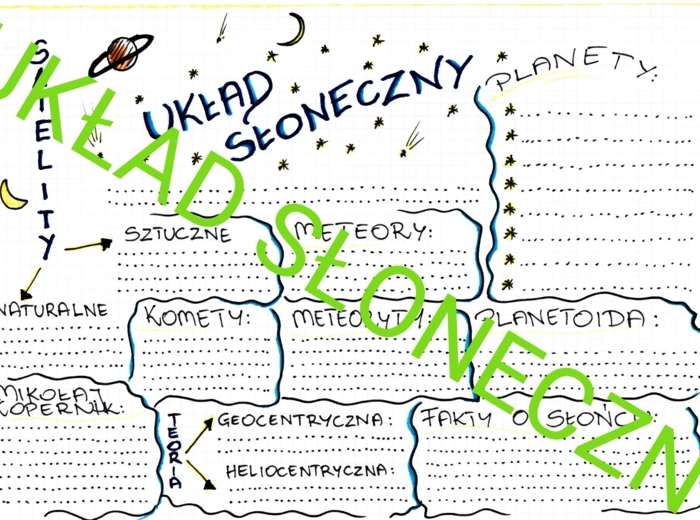 UKŁAD SŁONECZNY
PLANETY:
SATELITY
SZTUCZNE
NATURALNE
METEORY:
KOMETY:
METEORYTY:
PLANETOIDA:
MIKOŁAJ
KOPERNIK:
TEORIA
GEOCENTRYCZNA:
HELIOCENTRYCZNA:
FAKTY O SŁOŃCU:
UKŁAD SŁONECZN